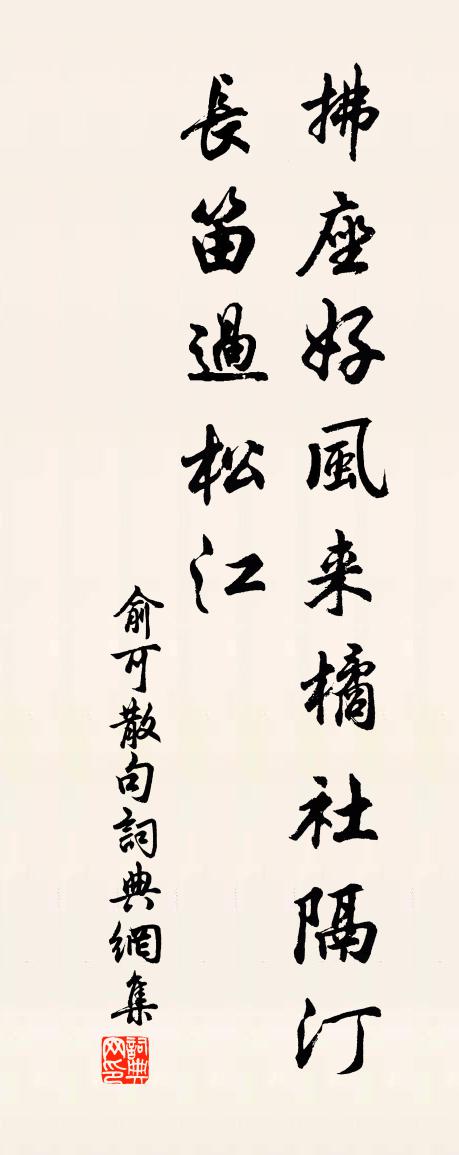 拂座好風来橘社隔汀
長笛過松江
俞可散句詞典網集
詞典网印